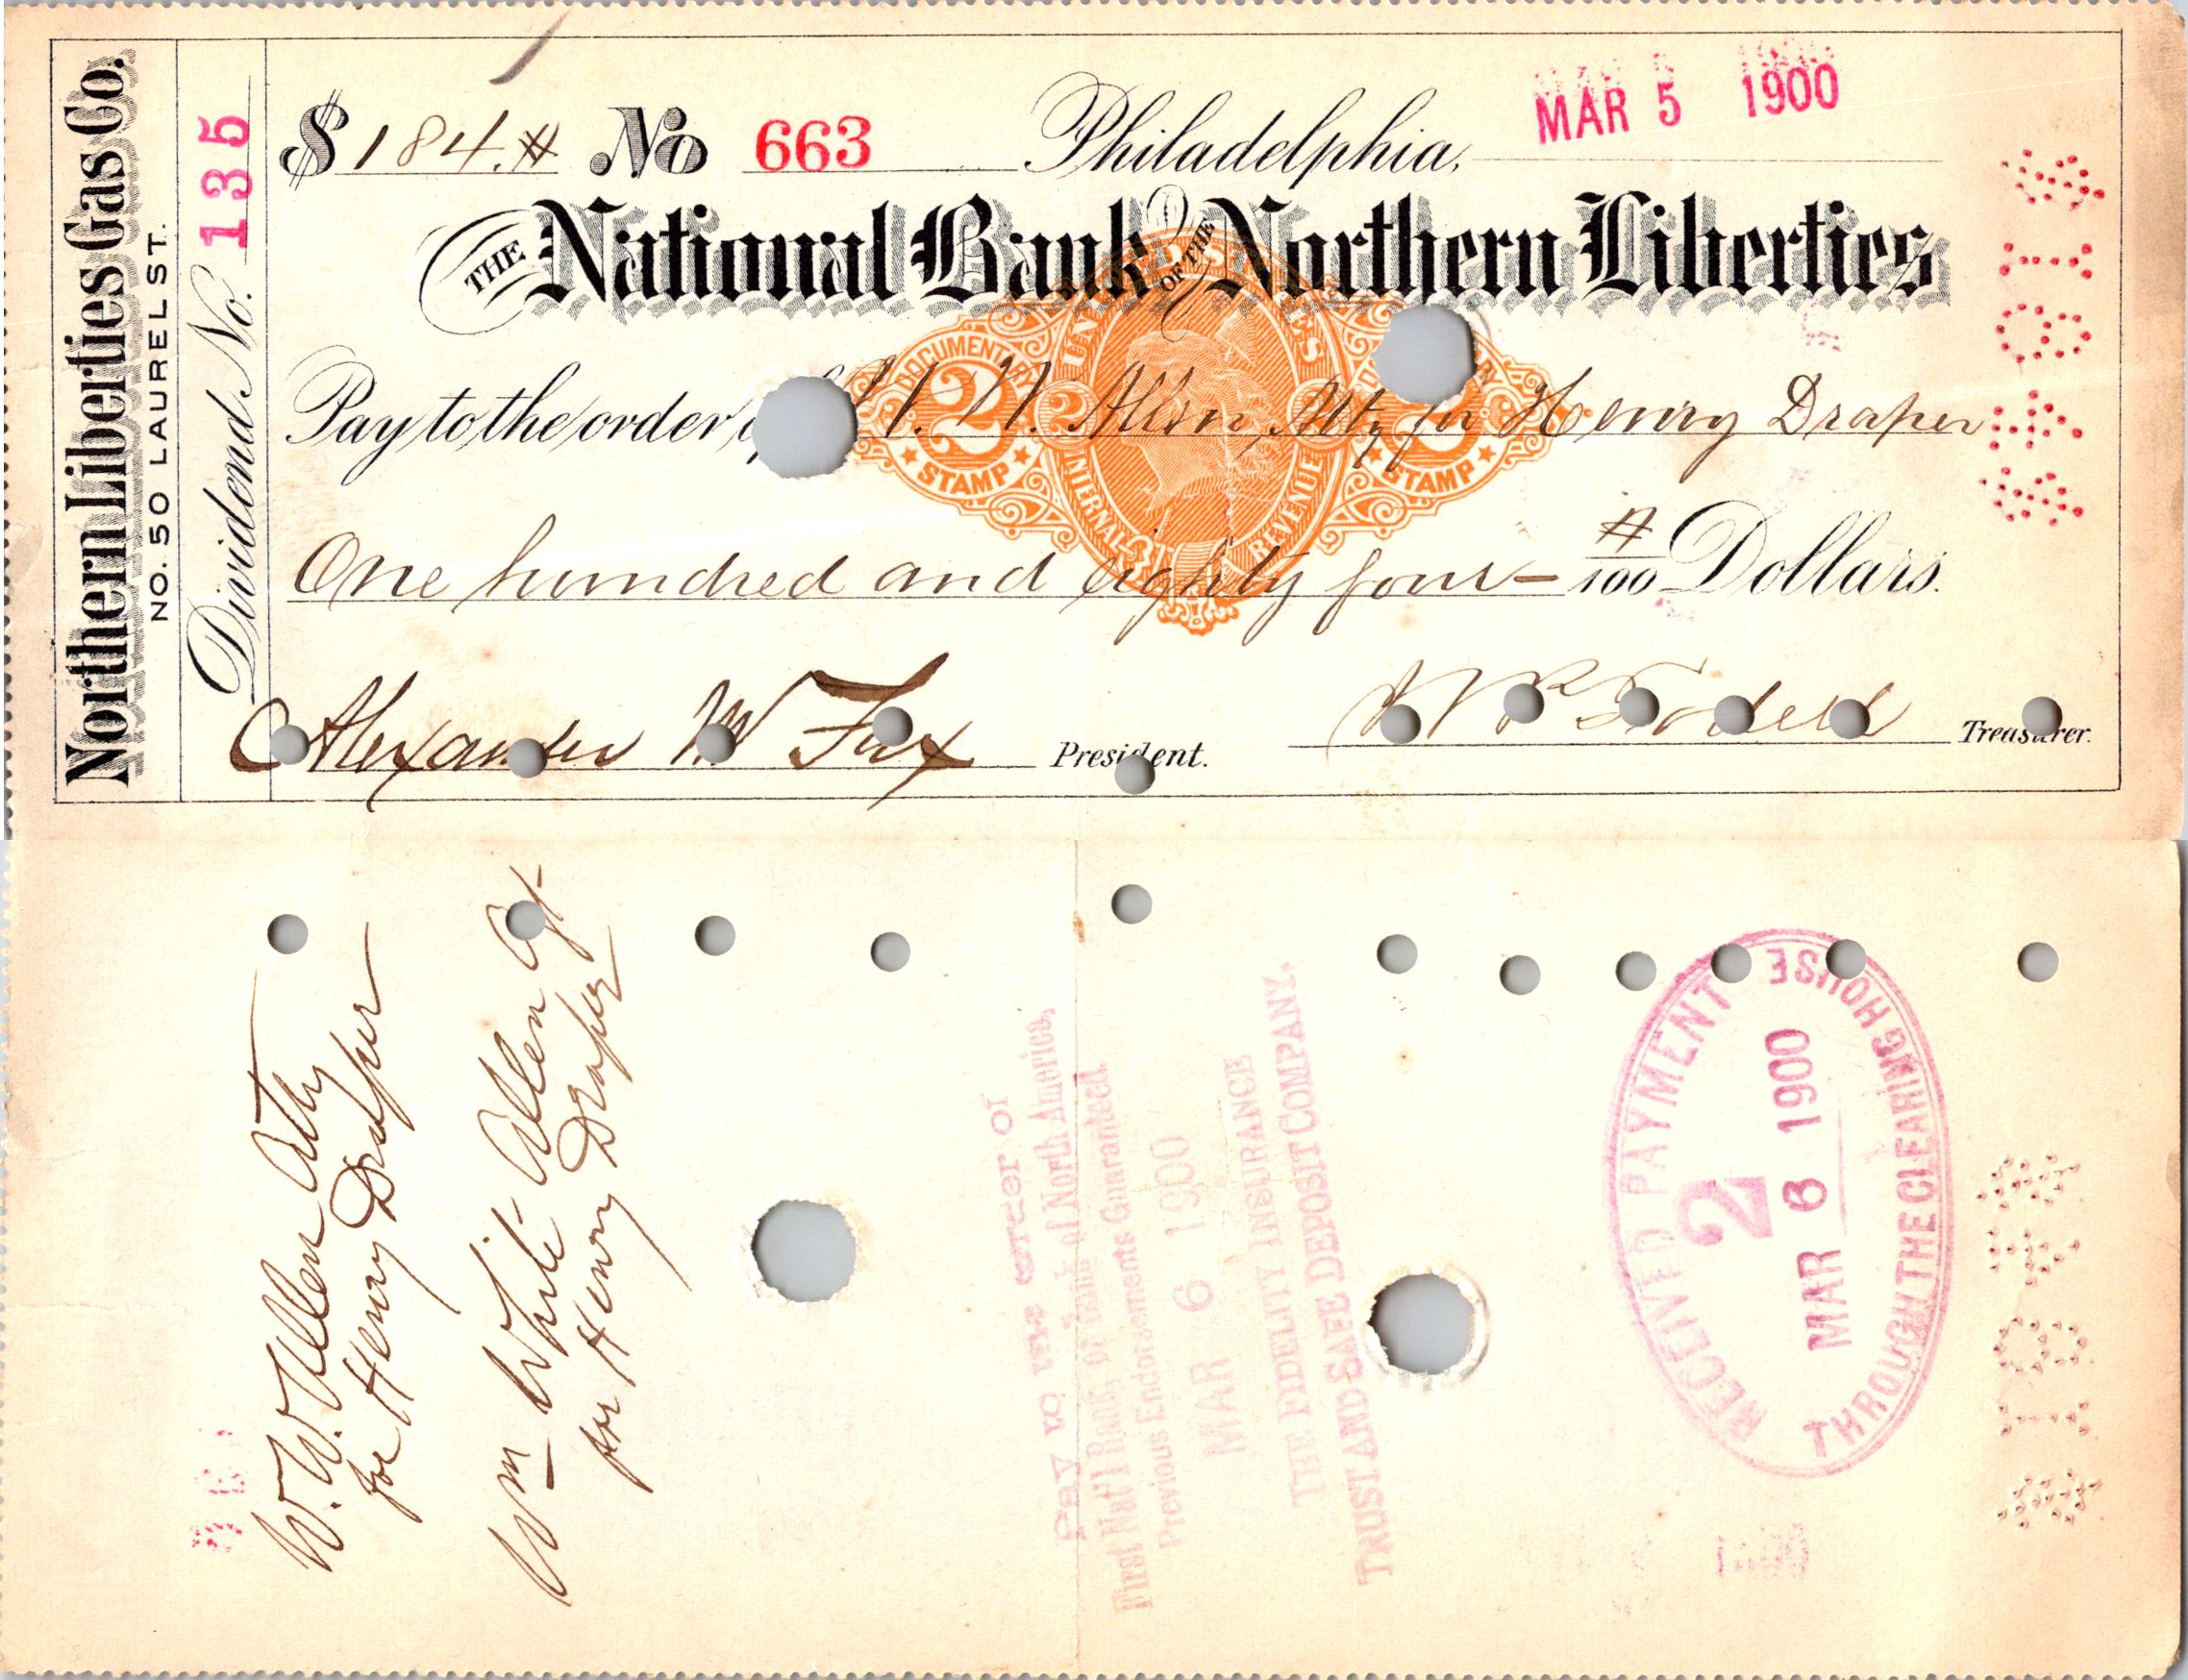 Northern Liberties Gas Co.
NO. 50 LAUREL ST.
Dividend No. 135
$ 184.# No 663 Philadelphia, MAR 5 1900
THE National Bank OF THE Northern Liberties
Pay to the order W. Allen, Atty for Henry Draper
One hundred and eighty four — #/100 Dollars.
UNITED STATES
DOCUMENTARY
2 2
STAMP STAMP
INTERNAL REVENUE
Alexander W Fox President.
Treasurer.
W. W. Allen Atty
for Henry Draper
Wm White Allen Agt
for Henry Draper
Pay to the order of
Bank of North America,
First Nat'l Bank, or Bank
Previous Endorsements Guaranteed.
MAR 6 1900
THE FIDELITY INSURANCE
TRUST AND SAFE DEPOSIT COMPANY.
RECEIVED PAYMENT
2
MAR 6 1900
THROUGH THE CLEARING HOUSE